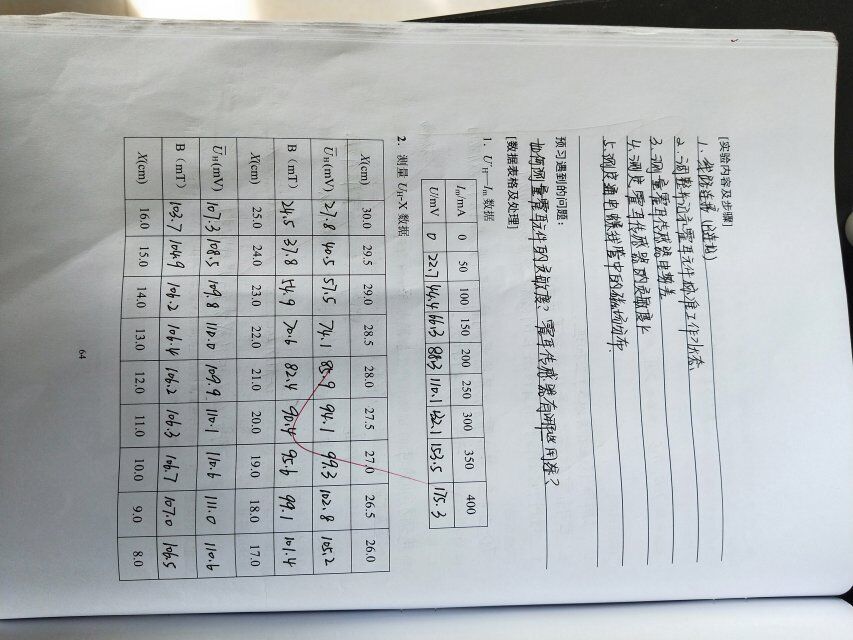 [实验内容及步骤]
1. 线路连接(时短)
2. 调整并记录霍耳元件的准工作状态
3. 测量霍耳传感器电势差
4. 测定霍耳传感器的灵敏度K
5. 测定通电螺线管中的磁场分布
预习遇到的问题:
如何测量霍耳元件的灵敏度? 霍耳传感器有哪些用途?
[数据表格及处理]
1. U_H—I_m 数据
I_m/mA 0 50 100 150 200 250 300 350 400
U/mV 0 22.7 44.4 66.3 88.3 110.1 132.1 153.5 175.3
2. 测量 U_H-X 数据
X(cm) 30.0 29.5 29.0 28.5 28.0 27.5 27.0 26.5 26.0
U_H(mV) 27.8 40.5 57.5 74.1 85.9 94.1 99.3 102.8 105.2
B(mT) 24.5 37.8 54.9 70.6 82.4 90.4 95.6 99.1 101.4
X(cm) 25.0 24.0 23.0 22.0 21.0 20.0 19.0 18.0 17.0
U_H(mV) 107.3 108.5 109.8 110.0 109.9 110.1 110.6 111.0 110.6
B(mT) 103.7 104.9 106.2 106.4 106.2 106.3 106.7 107.0 106.5
X(cm) 16.0 15.0 14.0 13.0 12.0 11.0 10.0 9.0 8.0
64